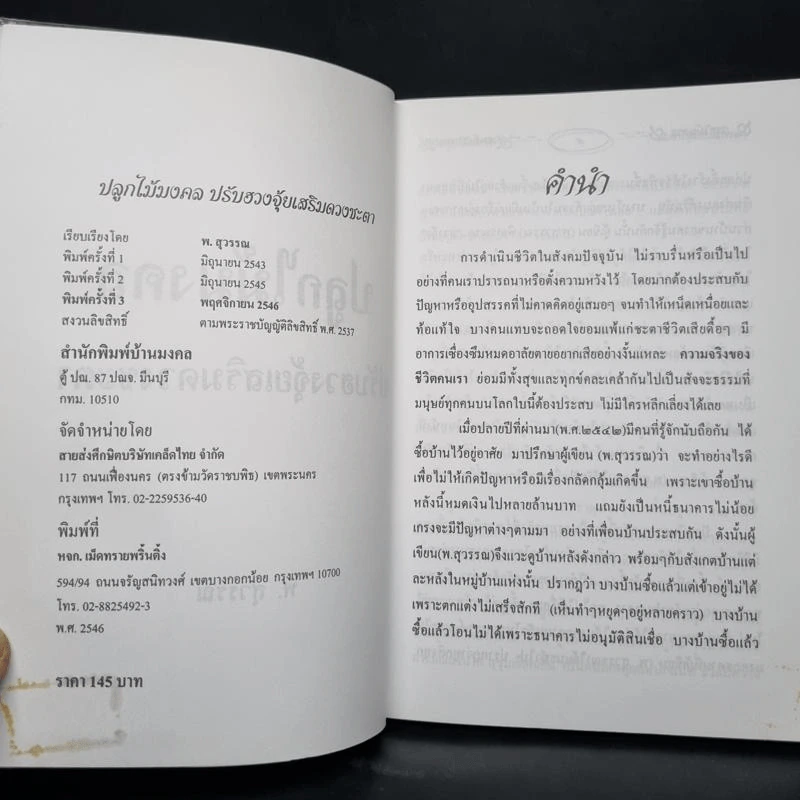 ปลูกไม้มงคล ปรับฮวงจุ้ยเสริมดวงชะตา
เรียบเรียงโดย พ. สุวรรณ
พิมพ์ครั้งที่ 1 มิถุนายน 2543
พิมพ์ครั้งที่ 2 มิถุนายน 2545
พิมพ์ครั้งที่ 3 พฤศจิกายน 2546
สงวนลิขสิทธิ์ ตามพระราชบัญญัติลิขสิทธิ์ พ.ศ. 2537
สำนักพิมพ์บ้านมงคล
ตู้ ปณ. 87 ปณจ. มีนบุรี
กทม. 10510
จัดจำหน่ายโดย
สายส่งศึกษิตบริษัทเคล็ดไทย จำกัด
117 ถนนเฟื่องนคร (ตรงข้ามวัดราชบพิธ) เขตพระนคร
กรุงเทพฯ โทร. 02-2259536-40
พิมพ์ที่
หจก. เม็ดทรายพริ้นติ้ง
594/94 ถนนจรัญสนิทวงศ์ เขตบางกอกน้อย กรุงเทพฯ 10700
โทร. 02-8825492-3
พ.ศ. 2546
ราคา 145 บาท
คำนำ
การดำเนินชีวิตในสังคมปัจจุบัน ไม่ราบรื่นหรือเป็นไป
อย่างที่คนเราปรารถนาหรือตั้งความหวังไว้ โดยมากต้องประสบกับ
ปัญหาหรืออุปสรรคที่ไม่คาดคิดอยู่เสมอๆ จนทำให้เหน็ดเหนื่อยและ
ท้อแท้ใจ บางคนแทบจะถอดใจยอมแพ้แก่ชะตาชีวิตเสียดื้อๆ มี
อาการเซื่องซึมหมดอาลัยตายอยากเสียอย่างงั้นแหละ ความจริงของ
ชีวิตคนเรา ย่อมมีทั้งสุขและทุกข์คละเคล้ากันไปเป็นสัจจะธรรมที่
มนุษย์ทุกคนบนโลกใบนี้ต้องประสบ ไม่มีใครหลีกเลี่ยงได้เลย
เมื่อปลายปีที่ผ่านมา(พ.ศ.๒๕๔๒)มีคนที่รู้จักนับถือกัน ได้
ซื้อบ้านไว้อยู่อาศัย มาปรึกษาผู้เขียน (พ.สุวรรณ)ว่า จะทำอย่างไรดี
เพื่อไม่ให้เกิดปัญหาหรือมีเรื่องกลัดกลุ้มเกิดขึ้น เพราะเขาซื้อบ้าน
หลังนี้หมดเงินไปหลายล้านบาท แถมยังเป็นหนี้ธนาคารไม่น้อย
เกรงจะมีปัญหาต่างๆตามมา อย่างที่เพื่อนบ้านประสบกัน ดังนั้นผู้
เขียน(พ.สุวรรณ)จึงแวะดูบ้านหลังดังกล่าว พร้อมๆกับสังเกตบ้านแต่
ละหลังในหมู่บ้านแห่งนั้น ปรากฏว่า บางบ้านซื้อแล้วแต่เข้าอยู่ไม่ได้
เพราะตกแต่งไม่เสร็จสักที (เห็นทำๆหยุดๆอยู่หลายคราว) บางบ้าน
ซื้อแล้วโอนไม่ได้เพราะธนาคารไม่อนุมัติสินเชื่อ บางบ้านซื้อแล้ว